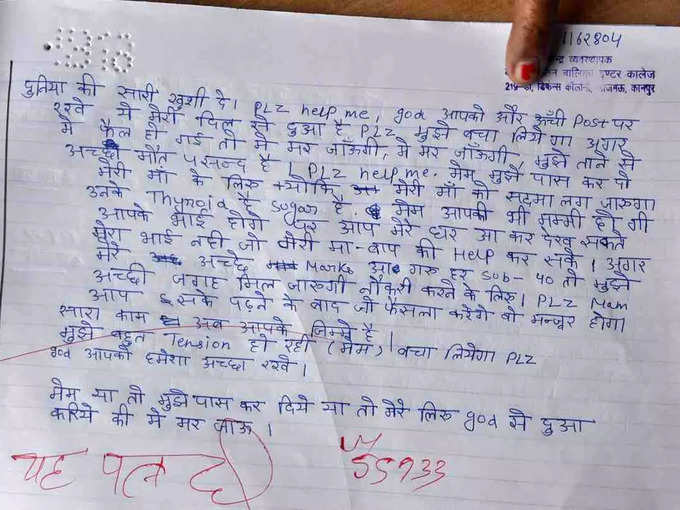 1162804
केन्द्र व्यवस्थापक
बालिका इण्टर कालेज
कानपुर
दुनिया की सारी खुशी दे। PLZ help me, god आपको और ऊँची Post पर
रखे ये मेरी दिल से दुआ है, PLZ मुझे बचा लियेगा अगर
मैं फैल हो गई तो मै मर जाँऊगी, मै मर जाँऊगी, मुझे ताने से
अच्छी मौत पसन्द है। PLZ help me. मेम मुझे पास कर दो
मेरी माँ के लिए क्योकि मेरी माँ को सदमा लग जाएगा
उनके Thyroid है sugar है. मेम आपकी भी मम्मी हो गी
आपके भाई होगे पर आप मेरे घर आ कर देख सकते
मेरा भाई नही जो मेरी मा-बाप की Help कर सके। अगर
मेरे अच्छे Marks आ गए हर sub- 40 तो मुझे
अच्छी जगह मिल जाएगी नौकरी करने के लिए। PLZ Mam
आप इसके पढ़ने के बाद जो फैसला करेगे वो मन्जूर होगा
सारा काम अब आपके जिम्मे है।
मुझे बहुत Tension हो रही (मेम) बचा लियेगा PLZ
god आपको हमेशा अच्छा रखे।
मेम या तो मुझे पास कर दिये या तो मेरे लिए god से दुआ
करिये की मै मर जाऊ।
55933